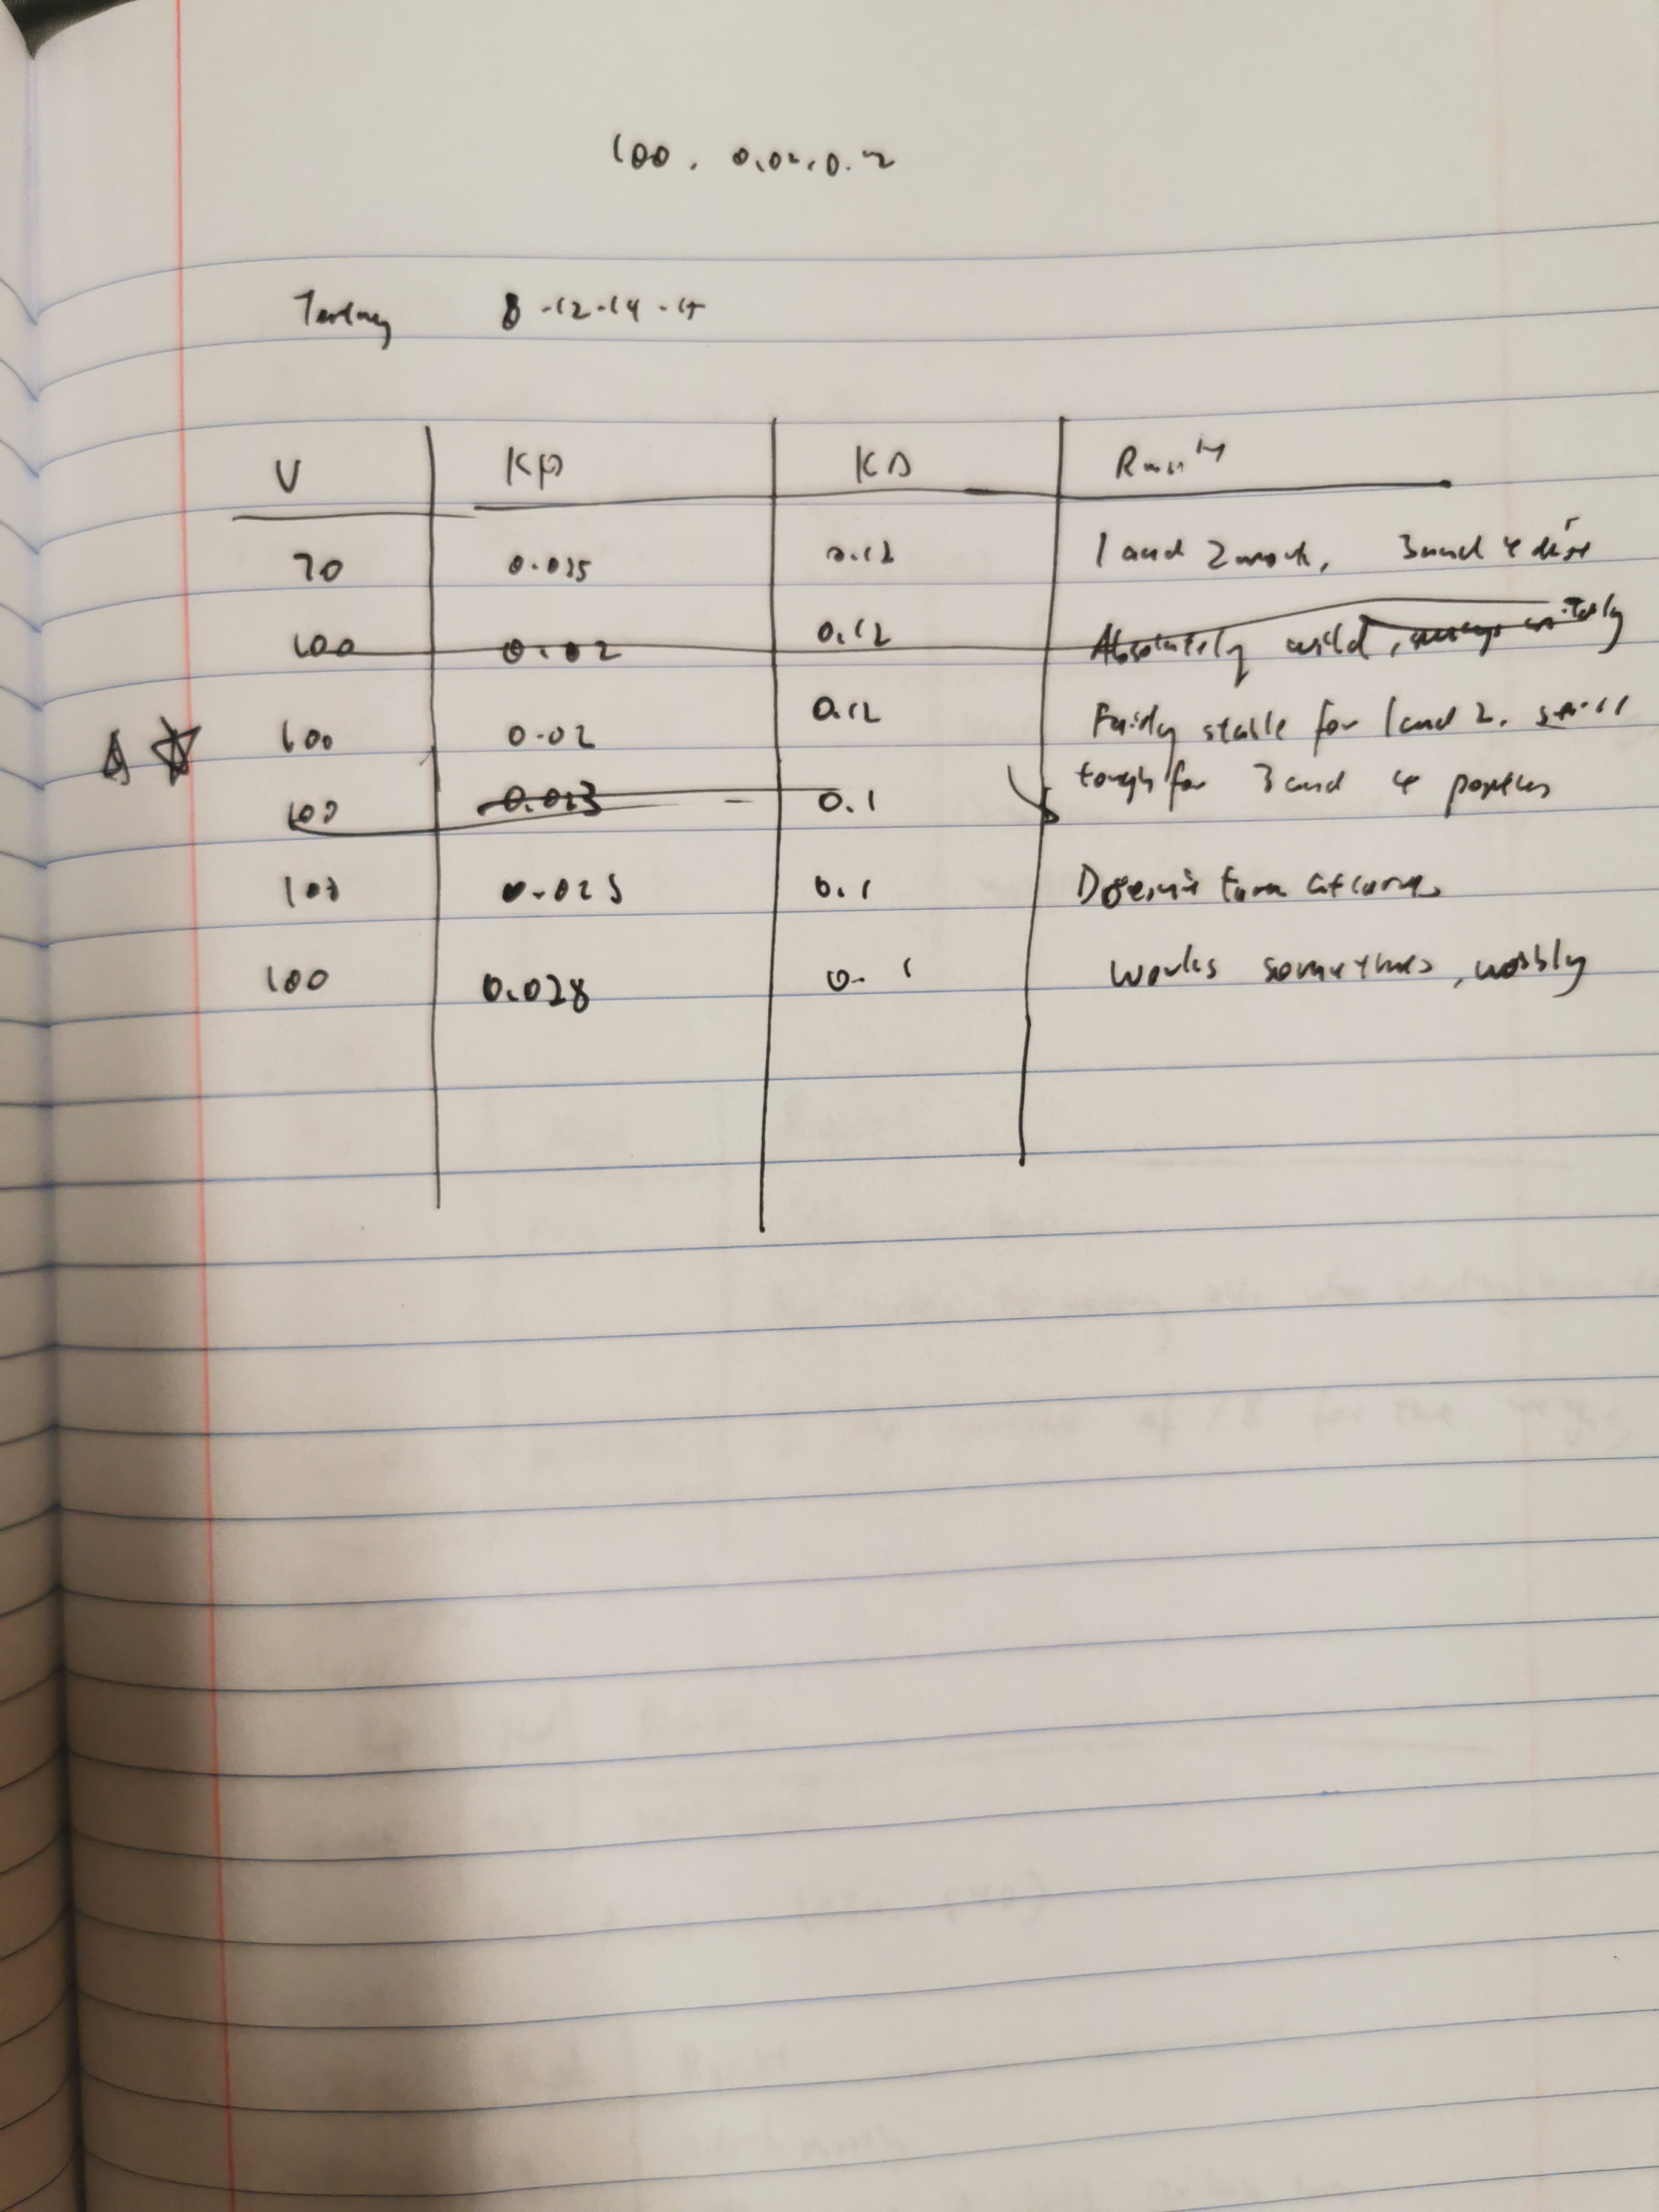 100, 0.02, 0.12
Testing 8-12-14-15
V KP KD Result
70 0.025 0.12 1 and 2 work, 3 and 4 dist
100 0.02 0.12 Absolutely wild,
100 0.02 0.12 Fairly stable for 1 and 2. still
tough for 3 and 4
100 0.023 0.1
100 0.025 0.1 Doesn't turn at
100 0.028 0.1 Works sometimes, wobbly